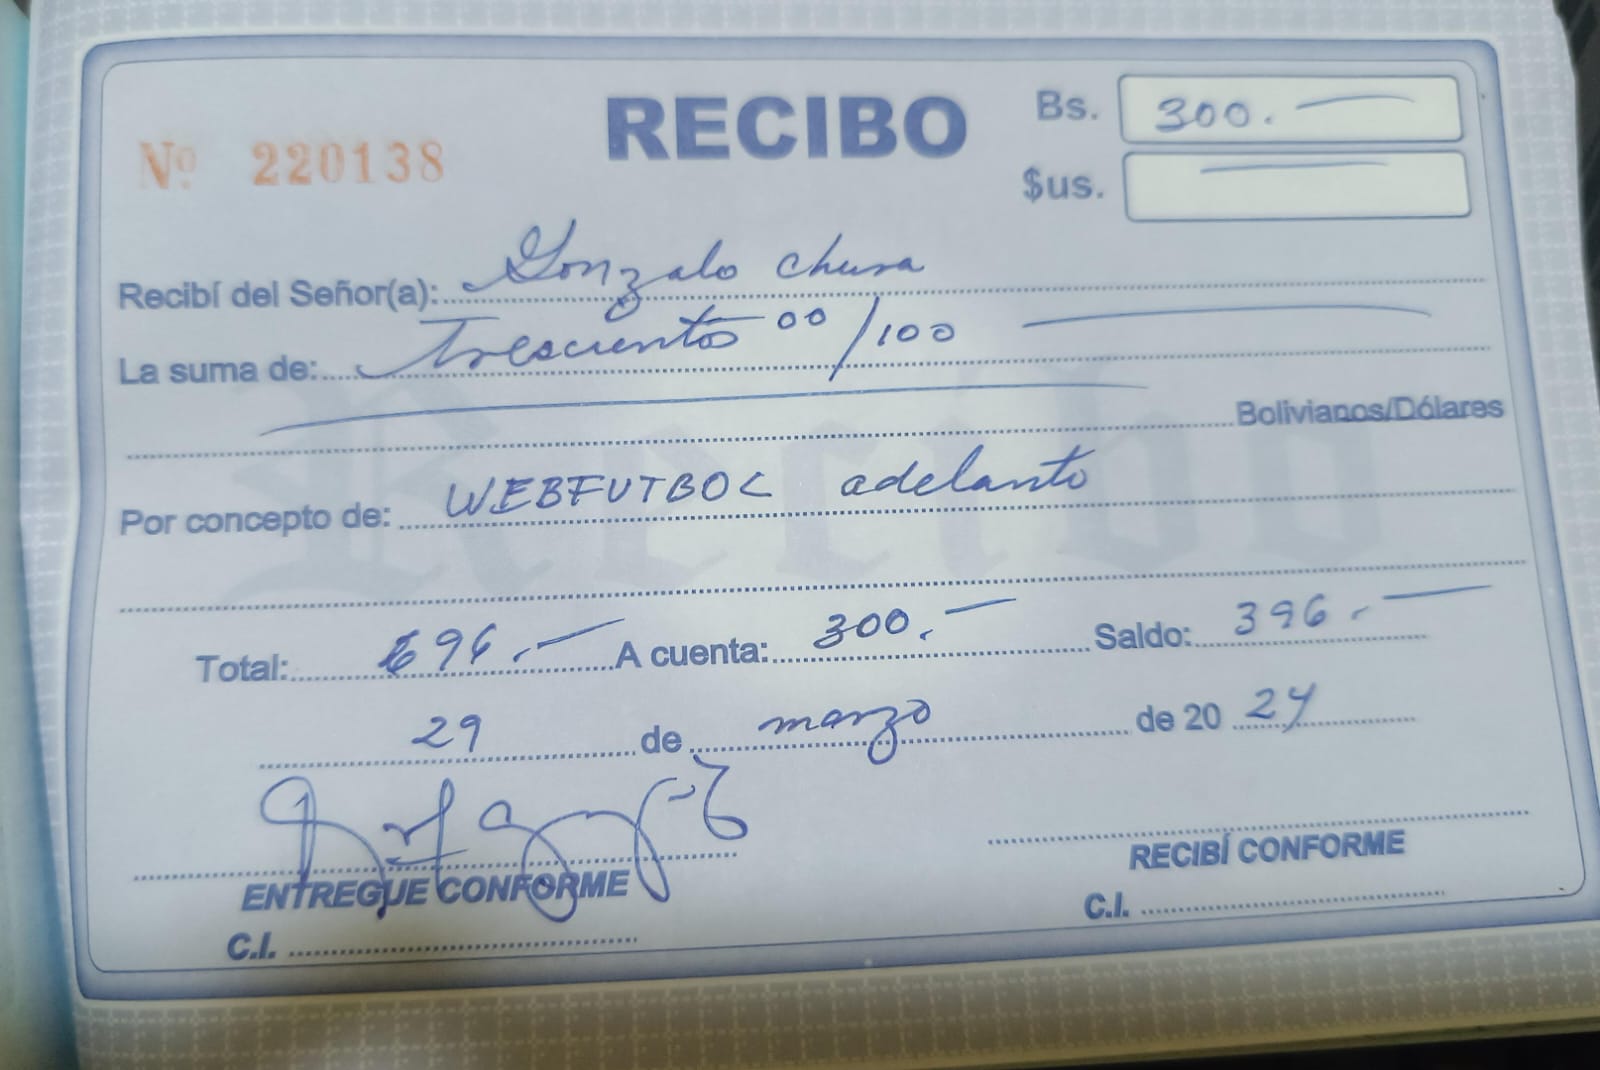 Nº 220138
RECIBO
Bs. 300.
$us.
Recibí del Señor(a): Gonzalo Chura
La suma de: Trescientos 00/100
Bolivianos/Dólares
Por concepto de: WEBFUTBOL adelanto
Total: 696.- A cuenta: 300.- Saldo: 396.-
29 de marzo de 20 24
ENTREGUE CONFORME
C.I.
RECIBÍ CONFORME
C.I.
Recibo